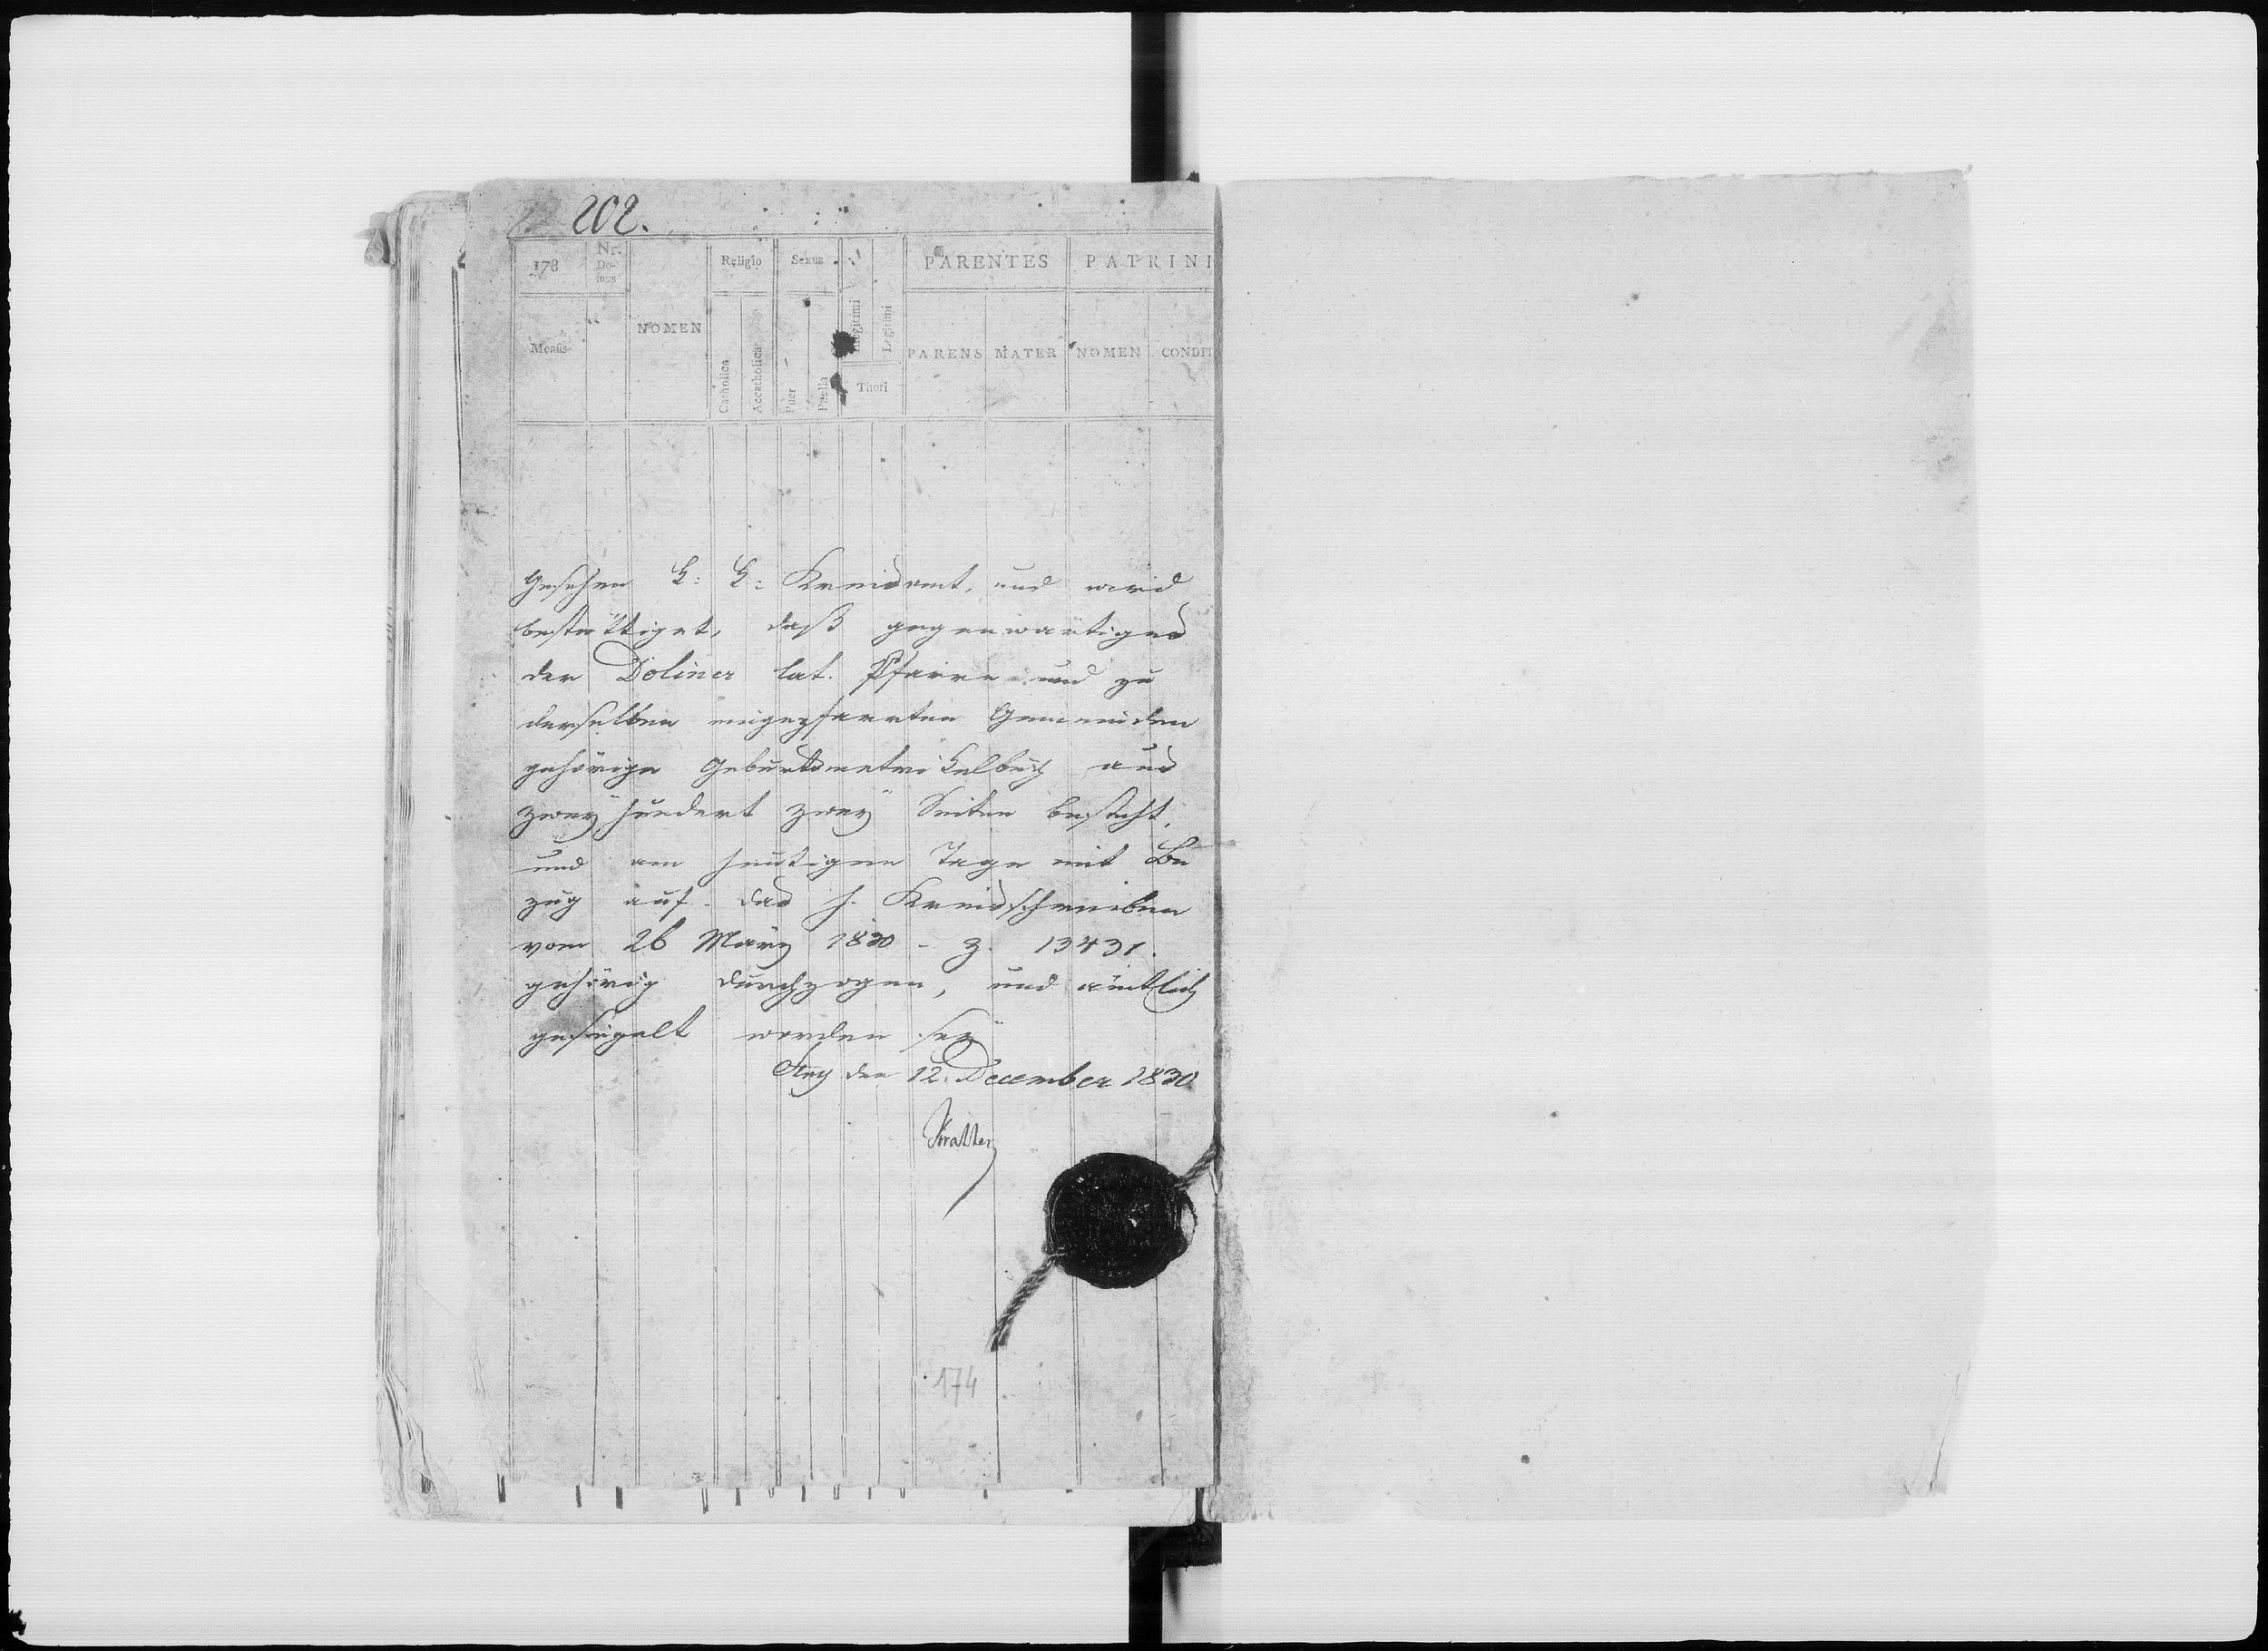 202.
178 Nr. Do- mus NOMEN Religio Sexus PARENTES PATRINI
Mensis Catholica Accatholica Puer Puella Illegitimi Legitimi Thori PARENS MATER NOMEN CONDIT
Gesehen K: K: Kreisamt, und wird
bestättiget, daß gegenwärtiges
der Doliner lat. Pfarre und zu
derselben eingepfarrten Gemeinden
gehörige Geburtsmatrikelbuch aus
zwey hundert zwey Seiten besteht,
und am heutigen Tage mit Be
zug auf das h. Kreisschreiben
vom 26 März 1830 - Z. 13431.
gehörig durchzogen, und ämtlich
gesiegelt worden sey
Stry den 12. December 1830
Kratter
174